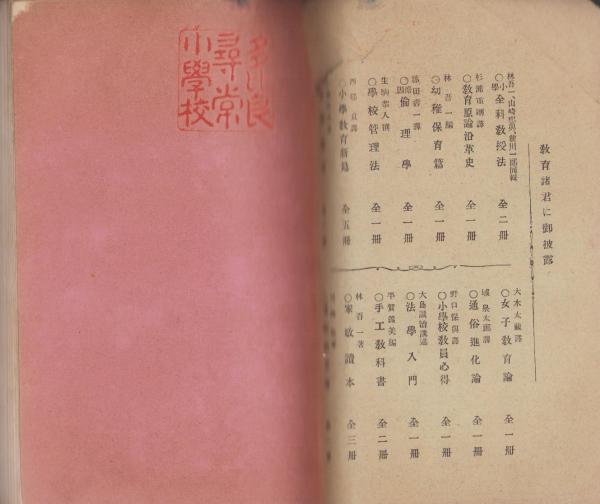 教育諸君に御披露
林吾一、山崎
○小學全科教授法 全二冊
杉浦重剛譯
○教育原論沿革史 全一冊
林吾一編
○幼稚保育篇 全一冊
○倫理學 全一冊
生駒恭人譯
○學校管理法 全一冊
西邨貞譯
○小學教育新篇 全五冊
大木太藏譯
○女子教育論 全一冊
城泉太郎譯
○通俗進化論 全一冊
野口保興譯
○小學校教員心得 全一冊
大島誠治講述
○法學入門 全一冊
平賀義美編
○手工教科書 全二冊
林吾一著
○家政讀本 全三冊
良
尋常
小學校